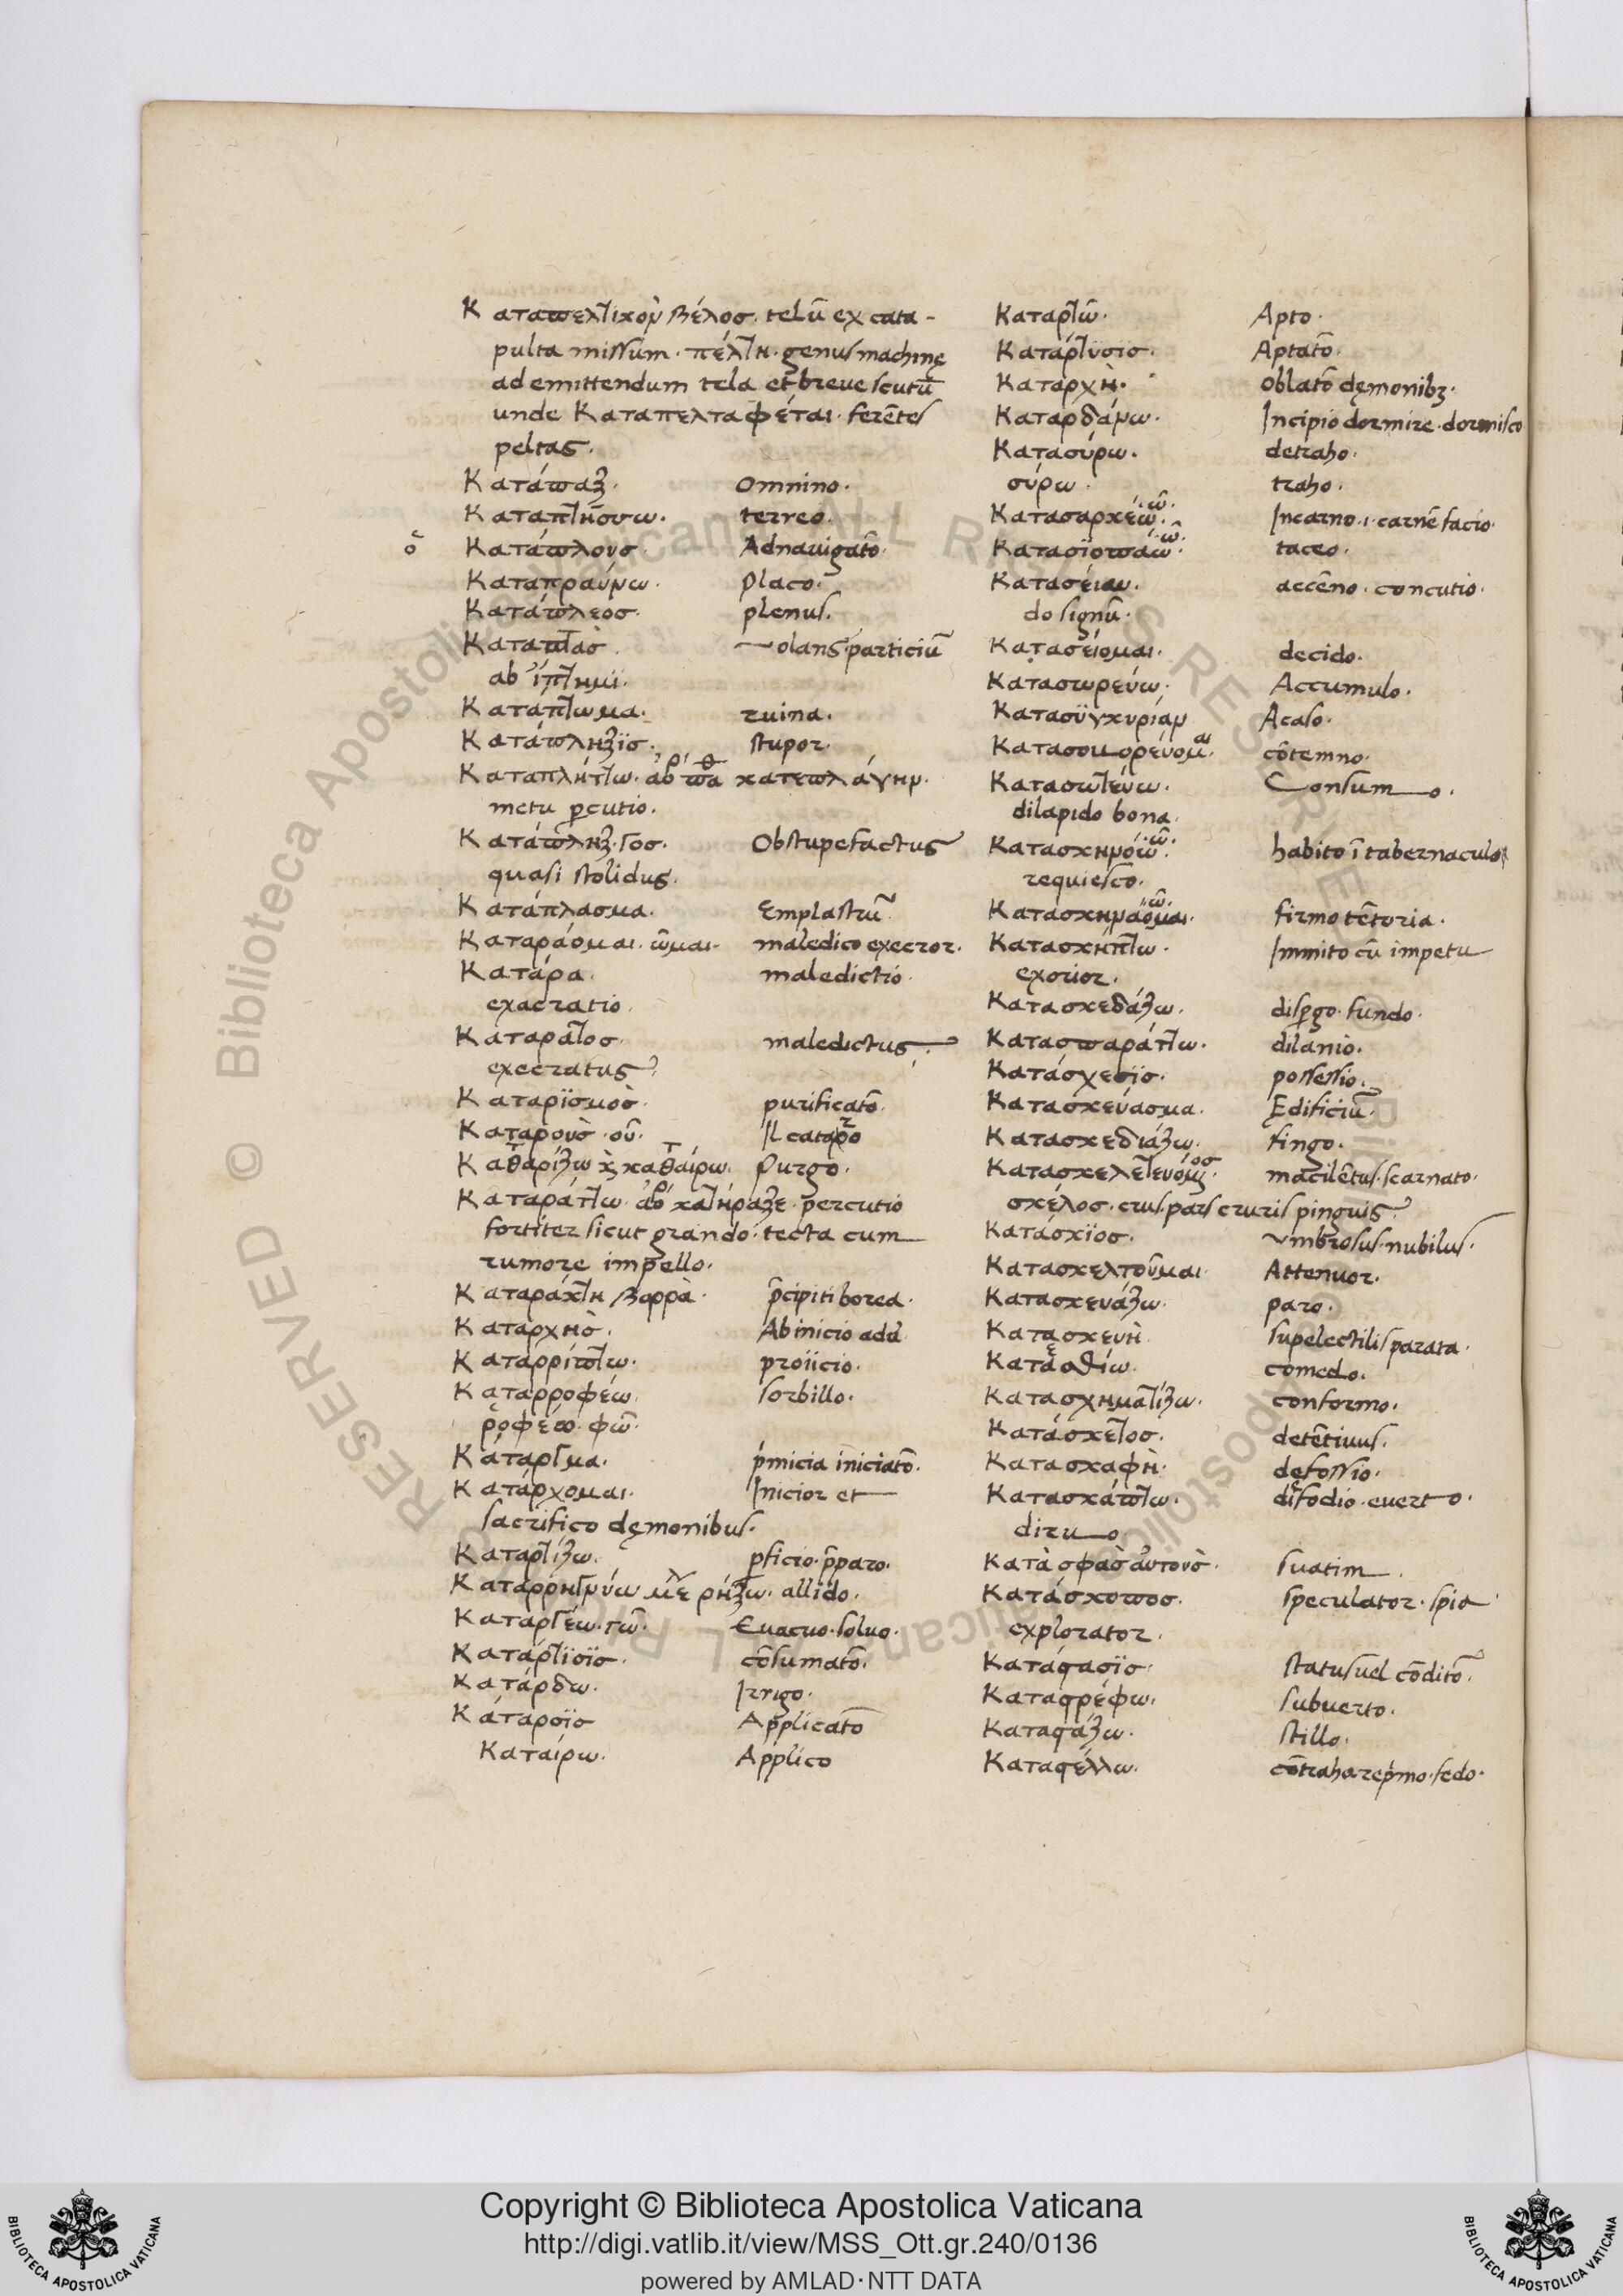 Καταπελτικὸν βέλος. telū ex cata-
pulta missum. πέλτη. genus machinę
ad emittendum tela et breue scutū
unde Καταπελταφέται. ferētes
peltas.
Κατάπαξ. omnino.
Καταπτήσσω. terreo.
ὁ Κατάπλους. Adnauigatō.
Καταπραΰνω. placo.
Κατάπλεος. plenus.
Καταπτὰς. olans particiū
ab ἵπτημι.
Κατάπτωμα. ruina.
Κατάπληξϊς. stupor.
Καταπλήττω. κατεπλάγην.
metu ꝑcutio.
Κατάπληξ.γος. Obstupefactus
quasi stolidus.
Κατάπλασμα. Emplastrū.
Καταράομαι. ῶμαι. maledico execror.
Κατάρα. maledictio.
exacratio.
Κατάρατος. maledictus.
execratus.
Καταρϊσμὸς. purificatō.
Καταρροὺς. οῦ.
Καθαρίζω κὶ καθαίρω. purgo.
Καταράττω. κατήραξε. percutio
fortiter sicut grando. tecta cum
rumore impello.
Καταράκτη βορρὰ. p̄cipiti borea.
Καταρχὴς. Ab inicio
Καταρρίπτω. proiicio.
Καταρροφέω. sorbillo.
ῥοφέω. φῶ.
Κάταργμα. pͥmicia iniciatō.
Κατάρχομαι. Inicior et
sacrifico dęmonibus.
Καταρτίζω. ꝑficio. p̄paro.
Καταρρηγνύω ῥήξω. allido.
Καταργέω. γῶ. Euacuo. soluo.
Κατάρτϊσϊς. cōsumatō.
Κατάρδω. Irrigo.
Κάταρσϊς Applicatō
Καταίρω. Applico
Καταρτῶ. Apto.
Κατάρτϋσϊς. Aptatō.
Καταρχὴ. oblatō dęmonibꝫ.
Καταρδάνω. Incipio dormire. dormisco
Κατασύρω. detraho.
σύρω. traho.
Κατασαρκέω.ῶ. Incarno .i. carnē facio.
Κατασϊωπάω.ῶ. taceo.
Κατασείω. accēno. concutio.
do signū.
Κατασείομαι. decido.
Κατασωρεύω. Accumulo.
Κατασϋγκυρίαν Acaso.
cōtemno.
Κατασωτεύω. Consumo.
dilapido bona.
Κατασκηνόω.ῶ. habito ī tabernaculo
requiesco.
Κατασκηνάομαι.ῶ firmo tētoria.
Κατασκήπτω. Immito cū impetu
exorior.
Κατασκεδάζω. disꝑgo. fundo.
Κατασπαράττω. dilanio.
Κατάσχεσϊς. possessio.
Κατασκεύασμα. Ędificiū.
Κατασχεδιάζω. fingo.
Κατασκελετευόμενος macilētus. scarnato.
σκέλος. crus. pars cruris pinguis.
Κατάσκϊος. Vmbrosus. nubilus.
Κατασκελτοῦμαι. Attenuor.
Κατασκευάζω. paro.
Κατασκευὴ. supelectilis parata.
Κατεσθίω. comedo.
Κατασχηματίζω. conformo.
Κατάσχετος. detētiuus.
Κατασκαφὴ. defossio.
Κατασκάπτω. diffodio. euerto.
diruo
Κατὰ σφᾶς αὐτοὺς. suatim.
Κατάσκοπος. speculator. spia
explorator.
Κατάστασϊς. status uel cōditō.
Καταστρέφω. subuerto.
Καταστάζω. stillo.
Καταστέλλω. cōtraho repͥmo. sedo.
Copyright © Biblioteca Apostolica Vaticana
http://digi.vatlib.it/view/MSS_Ott.gr.240/0136
powered by AMLAD·NTT DATA